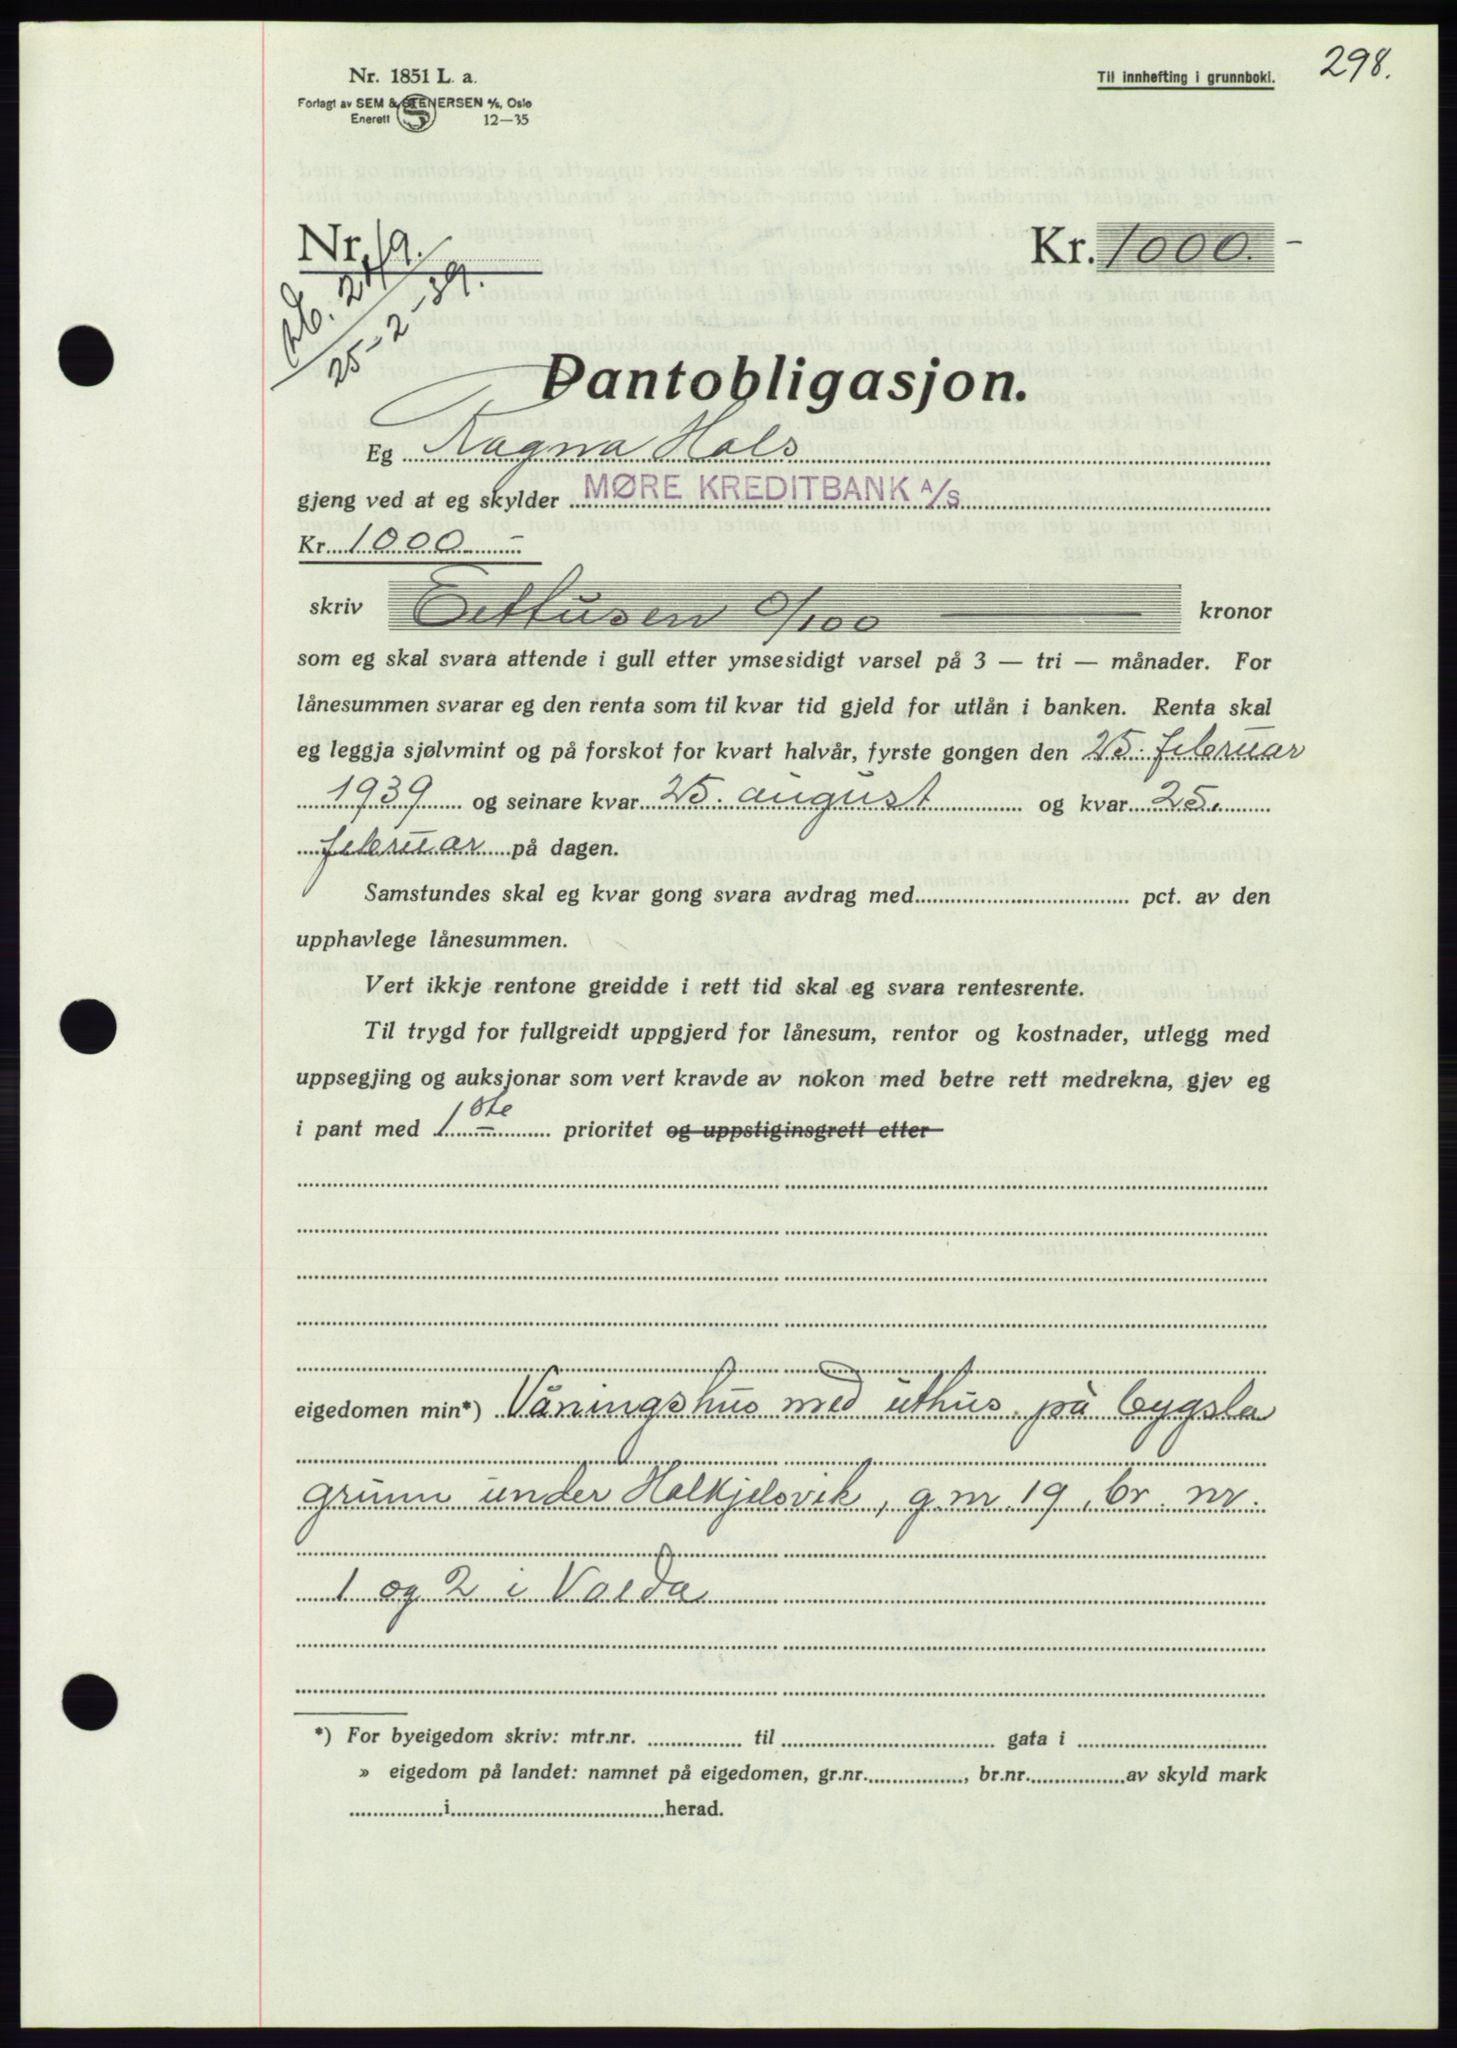 298.
Nr. 1851 L. a.
Til innhefting i grunnboki.
Forlagt av SEM & STENERSEN A/S, Oslo
Enerett 12—35
Nr. 19.
Kr. 1000.-
25-2-39.
Pantobligasjon.
Eg Ragna Hals
gjeng ved at eg skylder MØRE KREDITBANK A/S
Kr. 1000 -
skriv Eettusen 0/100 kronor
som eg skal svara attende i gull etter ymsesidigt varsel på 3 — tri — månader. For
lånesummen svarar eg den renta som til kvar tid gjeld for utlån i banken. Renta skal
eg leggja sjølvmint og på forskot for kvart halvår, fyrste gongen den 25. februar
1939 og seinare kvar 25. august og kvar 25.
februar på dagen.
Samstundes skal eg kvar gong svara avdrag med pct. av den
upphavlege lånesummen.
Vert ikkje rentone greidde i rett tid skal eg svara rentesrente.
Til trygd for fullgreidt uppgjerd for lånesum, rentor og kostnader, utlegg med
uppsegjing og auksjonar som vert kravde av nokon med betre rett medrekna, gjev eg
i pant med 1ste prioritet og uppstiginsgrett etter
eigedomen min*) Våningshus med uthus på bygsla
grunn under Halkjelsvik, g. nr. 19, br. nr.
1 og 2 i Volda
*) For byeigedom skriv: mtr.nr. til gata i
» eigedom på landet: namnet på eigedomen, gr.nr. , br.nr. av skyld mark
i herad.